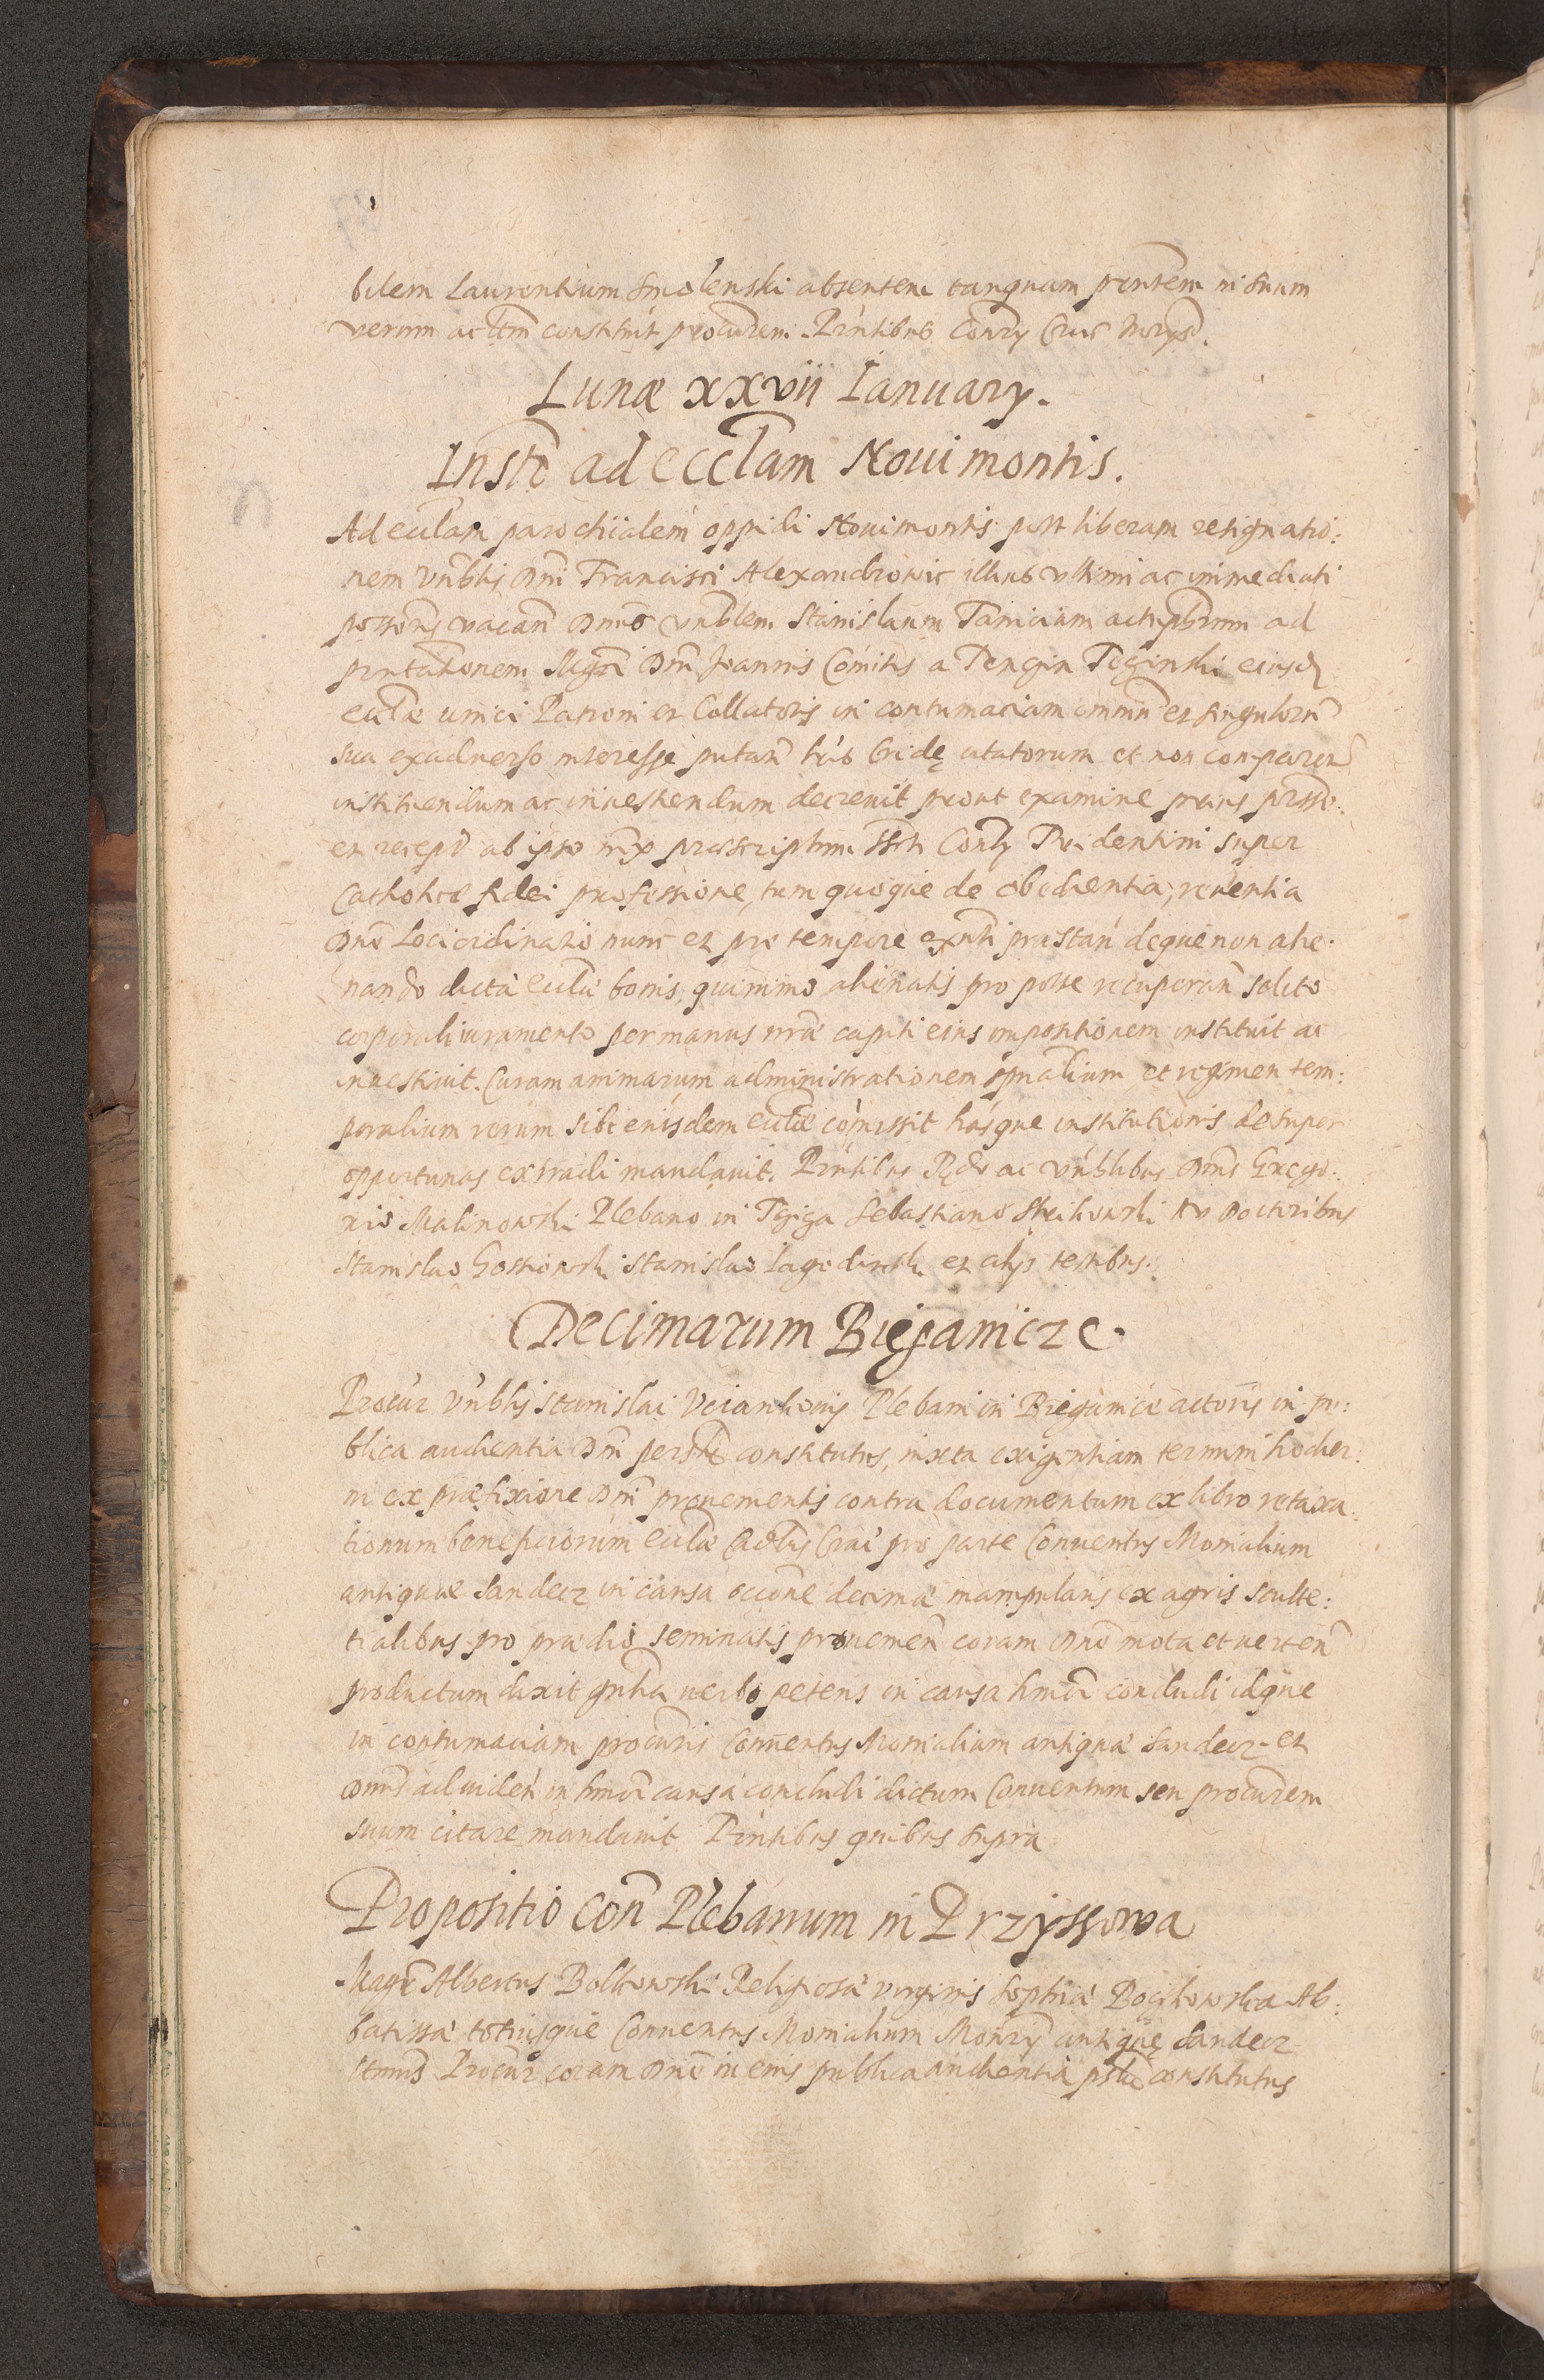 bilem Laurentium Smolenski absentem tanquam pñtem in suum
verum ac ltm constituit procurem. Pñtibus Conry Crac Notrys.
Lunæ xxvii Ianuary.
Instõ ad ecclãm Noui montis.
Ad ecclam parochialem oppidi Noui montis post liberam resignatio:
nem Vnblis Dni Francisci Alexandrowic illius vltimi ac immediati
possoris vacan Dnus vnblem Stanislaum Tanicium actu pbrum ad
pntationem Mgci Dni Joannis Comitis a Tenczin Teginski eiusd
ecclæ unici Patroni et Collatoris in contumaciam omnium et singulorũ
sua exaduerso interesse putan lris Cridę citatorum et non comparen
instituendum ac inuestiendum decreuit prout examine prius
et recepto ab ipso iux præscriptum Sti Conly Tridentini super
Catholicæ fidei professione, tum quoque de obedientia, reuentia
Dno Loci ordinario nunc et pro tempore exnti præstan deque non alie.
nando dictæ ecclæ bonis, quinimo alienatis pro posse recuperan solito
corporali iuramento per manus nræ capiti eius impositionem instituit ac
inuestiuit. Curam animarum administrationem spualium et regimen tem:
poralium rerum sibi eiusdem ecclæ comissit hasque institutionis desuper
opportunas extradi mandauit. Pñtibus Rdo ac vnblibus Dnis Grego:
rio Malinowski Plebano in Sebastiano Skrikowski Doctoribus
Stanislao Gostiowski Stanislao Iagodinski et alys testibus.
Decimarum Biegamicze.
Procur Vnblis Stanislai Plebani in Biegamice actoris in pu:
blica audientia Dni persltr constitutus, iuxta exigentiam termini hodier:
ni ex præfixione Dni prouenientis contra documentum ex libro retaxa:
tionum beneficiorum ecclæ Cathlis Crac pro parte Conuentus Monialium
antiquæ Sandecz in causa occõne decimæ manipularis ex agris sculte:
tialibus pro prædio seminatis prouenien coram Dno mota et verten
productum dixit gnlia verbo petens in causa hmoi concludi idque
in contumaciam procuris Conuentus Monialium antiquæ Sandecz et
Dnus ad viden in hmoi causa concludi dictum Conuentum seu procurem
suum citare mandauit Pñtibus quibus supra
Propositio Coñ Plebanum in Przyssowa
Magr Albertus Bolkowski Religiosæ virginis Sophiæ Ab:
batissæ totiusque Conuentus Monialium Monry antiquę Sandecz
ltimus Procur coram Dno in eius publica audientia psltr constitutus